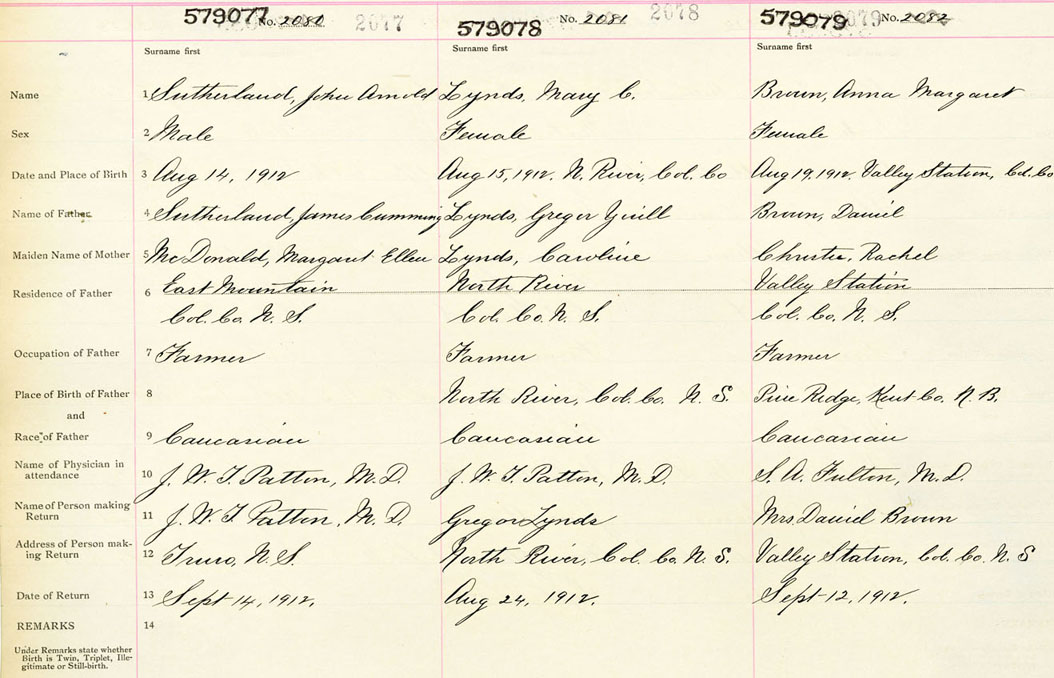 579077 No. 2080 2077 579078 No. 2081 2078 579079 2079 No. 2082
Surname first Surname first Surname first
Name 1 Sutherland, John Arnold Lynds, Mary C. Brown, Anna Margaret
Sex 2 Male Female Female
Date and Place of Birth 3 Aug 14, 1912 Aug 15, 1912. N. River, Col. Co Aug 19, 1912. Valley Station, Col. Co
Name of Father 4 Sutherland, James Cumming Lynds, Gregor Yuill Brown, Daniel
Maiden Name of Mother 5 McDonald, Margaret Ellen Lynds, Caroline Christie, Rachel
Residence of Father 6 East Mountain North River Valley Station
Col. Co. N. S. Col. Co. N. S. Col. Co. N. S.
Occupation of Father 7 Farmer Farmer Farmer
Place of Birth of Father 8 North River, Col. Co. N. S. Pine Ridge, Kent Co. N. B.
and
Race of Father 9 Caucasian Caucasian Caucasian
Name of Physician in attendance 10 J. W. T. Patton, M. D. J. W. T. Patton, M. D. S. A. Fulton, M. D.
Name of Person making Return 11 J. W. T. Patton, M. D. Gregor Lynds Mrs. Daniel Brown
Address of Person mak-ing Return 12 Truro, N. S. North River, Col. Co. N. S. Valley Station, Col. Co. N. S
Date of Return 13 Sept 14, 1912. Aug 24, 1912. Sept 12, 1912.
REMARKS 14
Under Remarks state whether
Birth is Twin, Triplet, Ille-
gitimate or Still-birth.